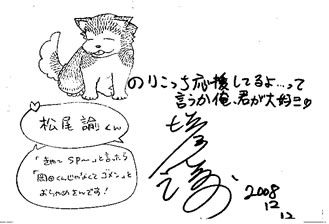 のりこっち応援してるよ…って
言うか俺、君が大好き♡
松尾 諭くん
「きゃ〜 SP〜」と言ったら
「岡田くんじゃなくてゴメン」と
おちゃめさんです!
2008
12
12